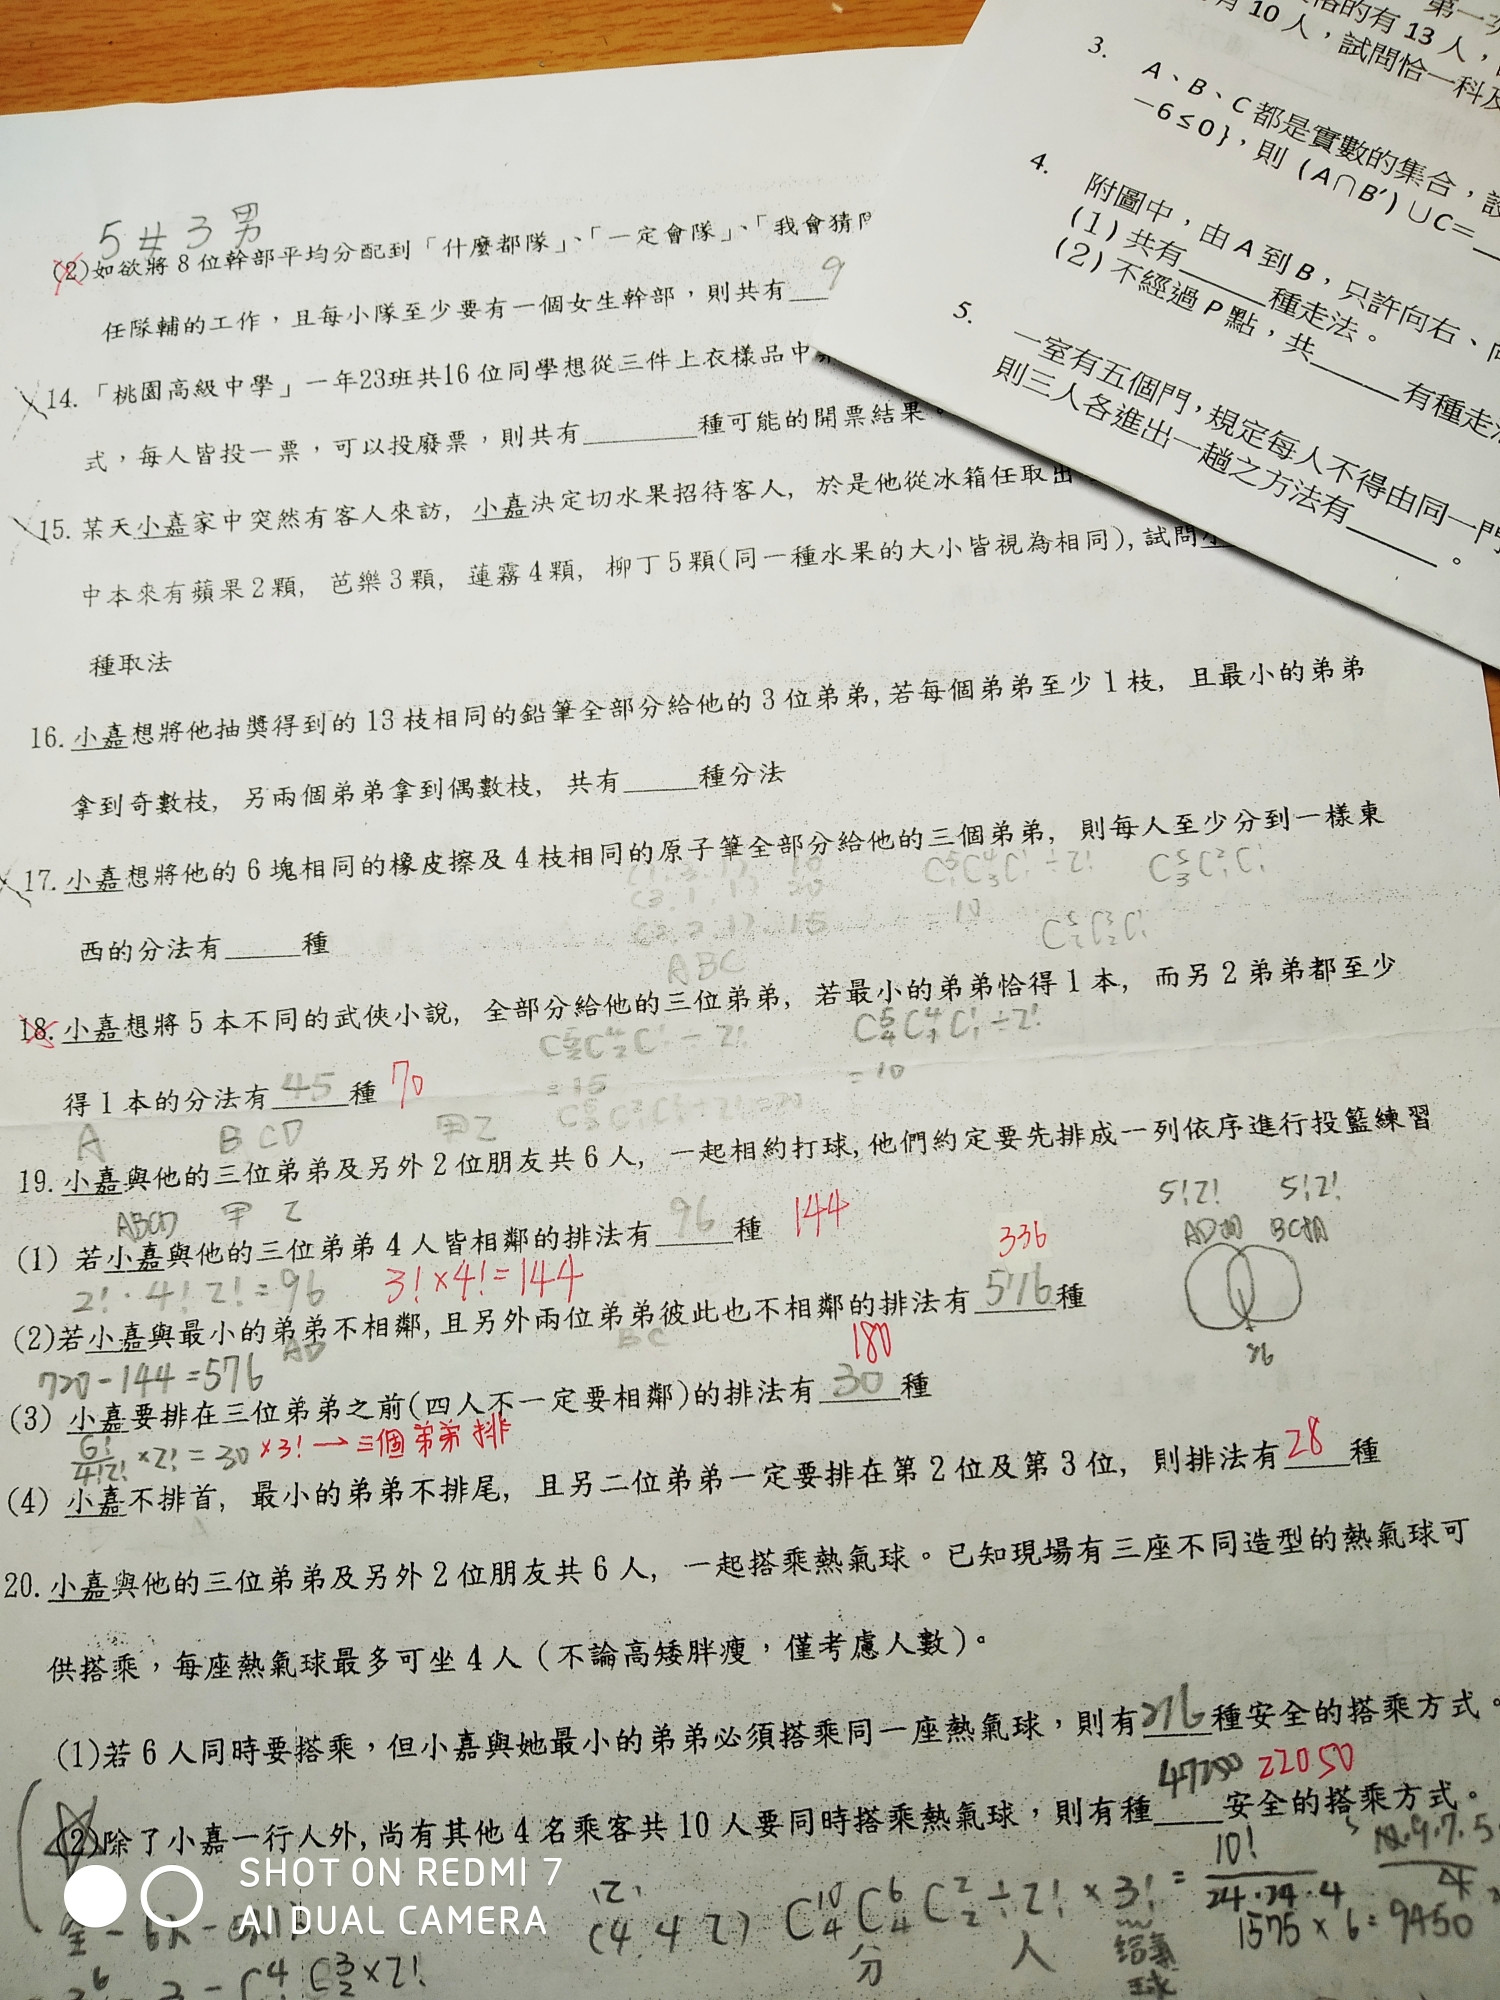 5女3男
(2)如欲將8位幹部平均分配到「什麼都隊」、「一定會隊」、「我會猜
任隊輔的工作，且每小隊至少要有一個女生幹部，則共有 9
14.「桃園高級中學」一年23班共16位同學想從三件上衣樣品中
式，每人皆投一票，可以投廢票，則共有______種可能的開票結果。
15. 某天小嘉家中突然有客人來訪, 小嘉決定切水果招待客人, 於是他從冰箱任取出
中本來有蘋果2顆, 芭樂3顆, 蓮霧4顆, 柳丁5顆(同一種水果的大小皆視為相同), 試問
種取法
16. 小嘉想將他抽獎得到的13枝相同的鉛筆全部分給他的3位弟弟,若每個弟弟至少1枝, 且最小的弟弟
拿到奇數枝, 另兩個弟弟拿到偶數枝, 共有____種分法
17. 小嘉想將他的6塊相同的橡皮擦及4枝相同的原子筆全部分給他的三個弟弟, 則每人至少分到一樣東
西的分法有____種
ABC
18. 小嘉想將5本不同的武俠小說, 全部分給他的三位弟弟, 若最小的弟弟恰得1本, 而另2弟弟都至少
= 15
= 10
得1本的分法有 45 種 70
A B CD 甲乙
19. 小嘉與他的三位弟弟及另外2位朋友共6人, 一起相約打球,他們約定要先排成一列依序進行投籃練習
ABCD 甲 乙
5!2! 5!2!
(1) 若小嘉與他的三位弟弟4人皆相鄰的排法有 96 種 144
2!·4!2!=96 3!×4!=144
336
(2)若小嘉與最小的弟弟不相鄰,且另外兩位弟弟彼此也不相鄰的排法有 576 種
AD BC
720-144=576
180
(3) 小嘉要排在三位弟弟之前(四人不一定要相鄰)的排法有 30 種
6!/4!2! ×2! = 30 ×3! → 三個弟弟排
(4) 小嘉不排首, 最小的弟弟不排尾, 且另二位弟弟一定要排在第2位及第3位, 則排法有 28 種
20. 小嘉與他的三位弟弟及另外2位朋友共6人, 一起搭乘熱氣球。已知現場有三座不同造型的熱氣球可
供搭乘，每座熱氣球最多可坐4人（不論高矮胖瘦，僅考慮人數）。
(1)若6人同時要搭乘，但小嘉與她最小的弟弟必須搭乘同一座熱氣球，則有 216 種安全的搭乘方式。
47250 22050
(2)除了小嘉一行人外,尚有其他4名乘客共10人要同時搭乘熱氣球，則有種____安全的搭乘方式。
(4 4 2) C10 4 C6 4 C2 2 ÷2! ×3! = 10!/24·24·4
1575×6=9450
分 人 給氣球
SHOT ON REDMI 7
AI DUAL CAMERA
有10人，試問恰一科及
3. A、B、C都是實數的集合，設
-6≤0}，則 (A∩B′)∪C=
4. 附圖中，由A到B，只許向右、向
(1) 共有______種走法。
(2) 不經過P點，共______有種走法
5. 一室有五個門，規定每人不得由同一門
則三人各進出一趟之方法有______。